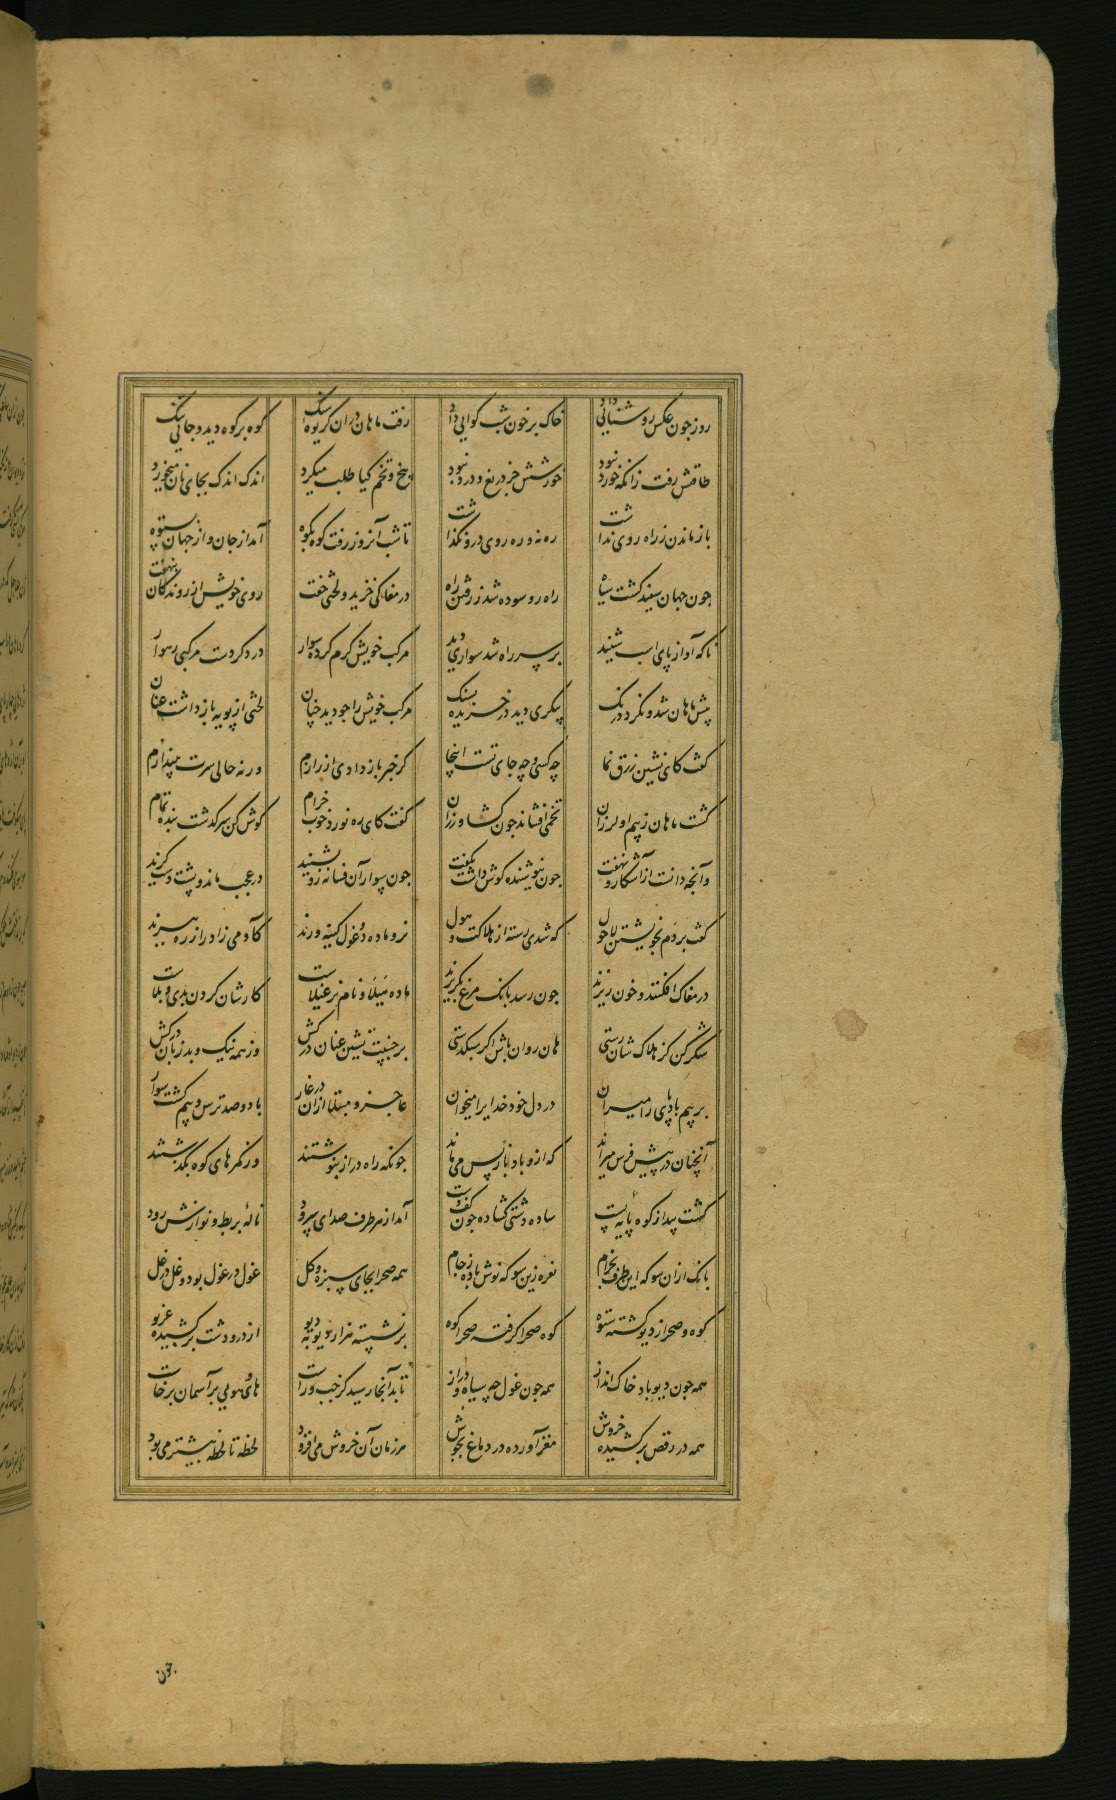 روز چون عکس روشنائی داد خاک بر خون شب گوایی داد رفت ماهان دران گریوه تنگ کوه بر کوه دید و جائی تنگ
طاقتش رفت زانکه خورد نبود خورشش جز دریغ و درد نبود بیخ و تخم گیا طلب میکرد اندک اندک بجای نان میخورد
باز ماندن ز راه روی نداشت ره نه و ره روی فرو نگذاشت تا شب آن روز رفت کوه بکوه آمد از جان و از جهان بستوه
چون جهان سپید گشت سیاه راه رو سوده شد ز رفتن راه در مغاکی خزید و لختی خفت روی خویش از روندگان بنهفت
ناگه آواز پای اسب شنید بر سر راه شد سواری دید مرکب خویش گرم کرده سوار در دگر دست مرکبی رهوار
پیش ماهان شد و نکرد درنگ پیکری دید در خزیده بسنگ مرکب خویش را چو دید چنان لختی از پویه باز داشت عنان
گفت کای نشین زرق نما چه کسی و چه جای تست اینجا گر خبر باز دادی از رازم ورنه حالی سرت بیندازم
گشت ماهان ز بیم او لرزان تخمی افشاند چون کشاورزان گفت کای ره نورد خوب خرام گوش کن سرگذشت بنده تمام
وآنچه دانست از آشکار و نهفت چون نیوشنده گوش داشت بگفت چون سوار آن فسانه زو بشنید در عجب ماند و پشت دست گزید
گفت بردم بخویشتن لاحول که شدی رسته از هلاکت و هول نر و ماده دو غول کینه ورند کآدمی زاد را ز ره ببرند
در مغاک افکنند و خون ریزند چون رسد بانگ مرغ بگریزند ماده هیلا و نام نر غیلاست کارشان کردن بدی و بلاست
شکر کن کز هلاک شان رستی هان روان باش اگر سبکدستی بر جنیبت نشین عنان درکش وز همه نیک و بد زبان درکش
بر پیم بادپای را میران در دل خود خدای را میخوان عاجز و مبتلا ازان در غار با دو صد ترس و بیم گشت سوار
آنچنان در پیش فرس میراند که ازو باد باز پس می ماند چونکه راه دراز بنوشتند وز کمرهای کوه بگذشتند
گشت پیدا ز کوه پایهٔ پست ساده دشتی گشاده چون کف دست آمد از هر طرف صدای سرود نالهٔ بربط و نوازش رود
بانگ ازان سو که این طرف بخرام نعره زین سو که نوش باده ز جام همه صحرا بجای سبزه و گل غول در غول بود و غل در غل
کوه و صحرا ز دیو گشته ستوه کوه صحرا گرفته صحرا کوه بر نشسته هزار دیو بدیو از در و دشت بر کشیده غریو
همه چون دیو باد خاک انداز همه چون غول چه سیاه و دراز تا بدآنجا رسید کز چپ و راست های و هویی بر آسمان برخاست
همه در رقص بر کشیده خروش مغز آورده در دماغ بجوش هر زمان آن خروش می افزود لحظه تا لحظه بیشتر می بود
چون